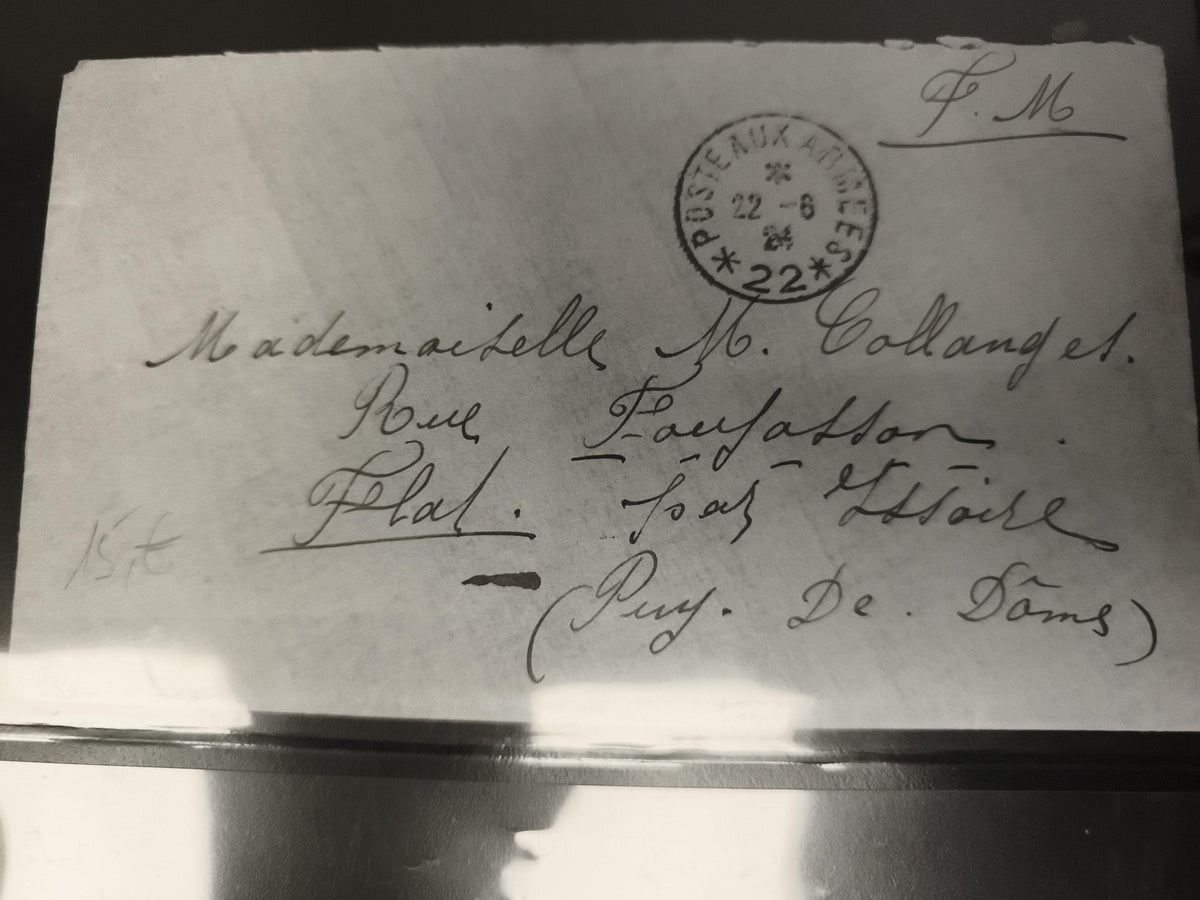 F. M
* POSTE AUX ARMEES *
*
22 -6
24
22
Mademoiselle M. Collanges.
Rue Foufasson.
Flat. par Issoire
(Puy. De. Dôme)
15,€